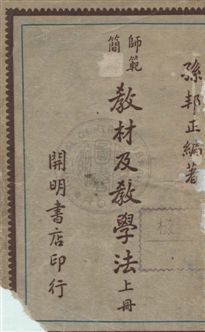 孫邦正編著
師範
簡
教材及教學法上冊
開明書店印行